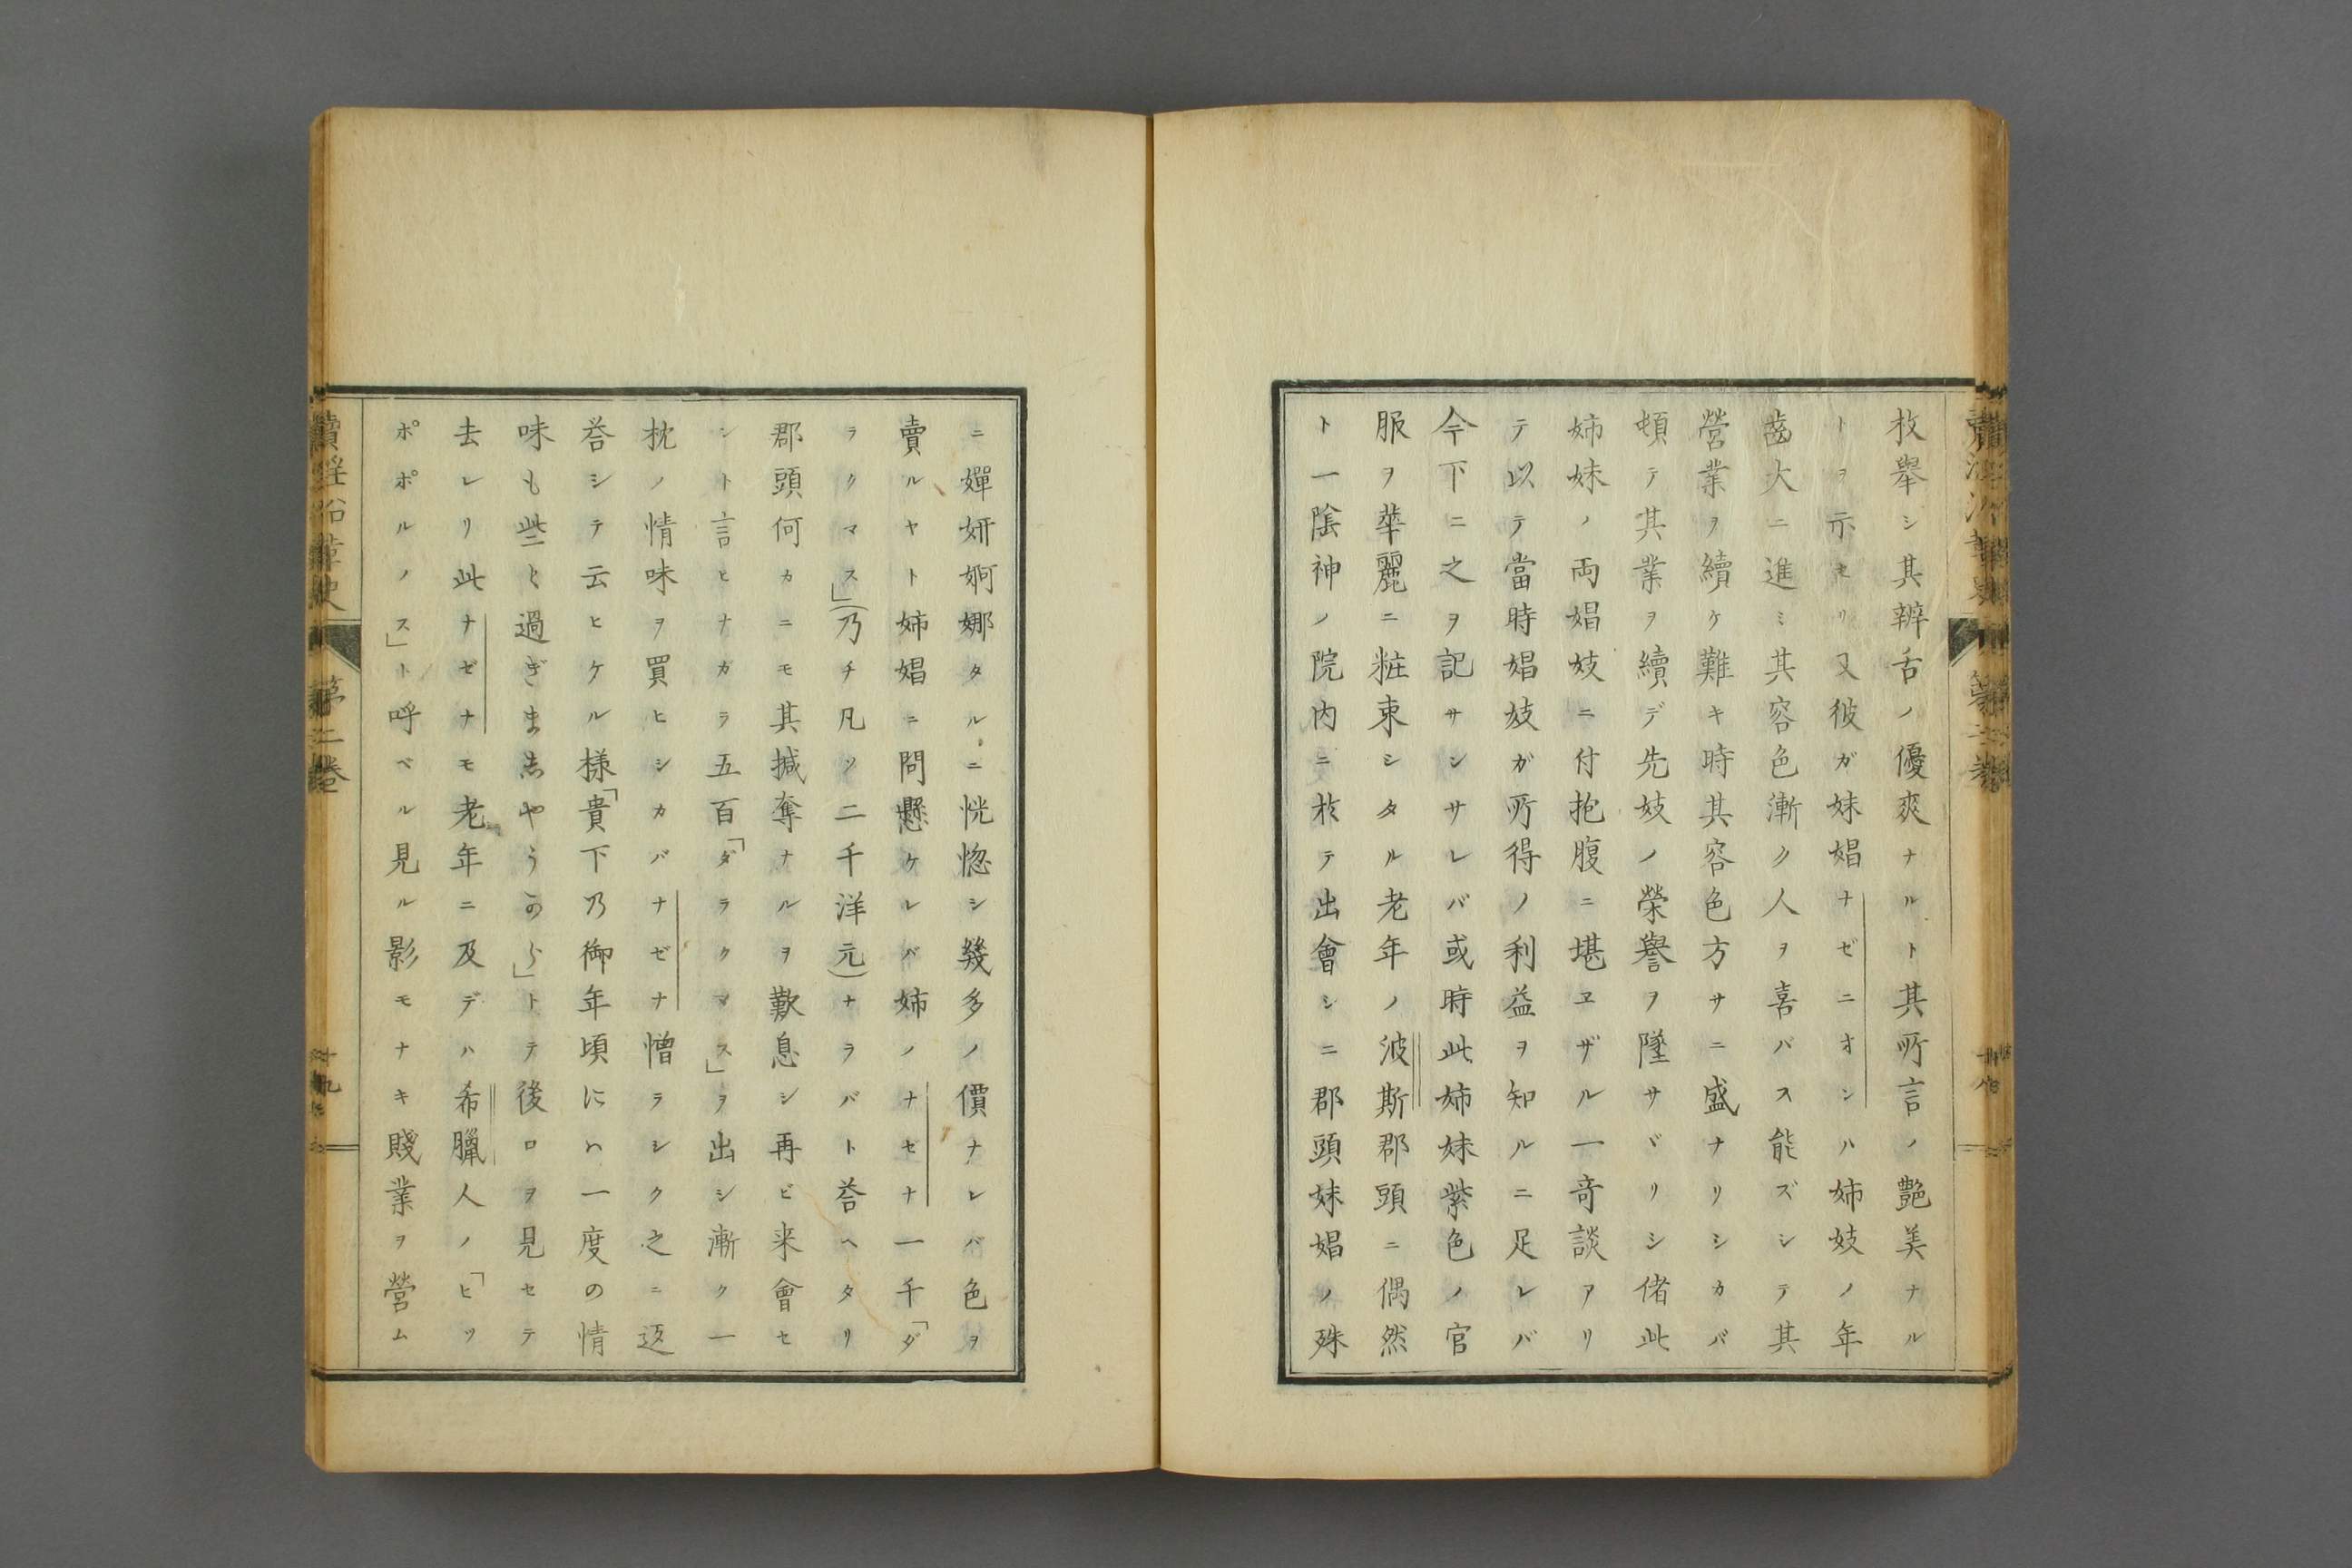 枚舉シ其辨舌ノ優爽ナルト其所言ノ艶美ナル
トヲ示セリ又彼ガ妹娼ナゼニオンハ姉妓ノ年
齒大ニ進ミ其容色漸ク人ヲ喜バス能ズシテ其
營業ヲ續ケ難キ時其容色方サニ盛ナリシカバ
頓テ其業ヲ續デ先妓ノ榮譽ヲ墜サヾリシ偖此
姉妹ノ両娼妓ニ付抱腹ニ堪ヱザル一竒談アリ
テ以テ當時娼妓ガ所得ノ利益ヲ知ルニ足レバ
今下ニ之ヲ記サンサレバ或時此姉妹紫色ノ官
服ヲ華麗ニ粧束シタル老年ノ波斯郡頭ニ偶然
ト一陰神ノ院内ニ於テ出會シニ郡頭妹娼ノ殊
ニ嬋妍婀娜タルニ恍惚シ幾多ノ價ナレバ色ヲ
賣ルヤト姉娼ニ問懸ケレバ姉ノナゼナ一千「ダ
ラクマス」(乃チ凡ソ二千洋元)ナラバト荅ヘタリ
郡頭何カニモ其搣奪ナルヲ歎息シ再ビ来會セ
シト言ヒナカラ五百「ダラクマス」ヲ出シ漸ク一
枕ノ情味ヲ買ヒシカバナゼナ憎ラシク之ニ返
荅シテ云ヒケル様「貴下乃御年頃にハ一度の情
味も些と過ぎま志やうから」トテ後ロヲ見セテ
去レリ此ナゼナモ老年ニ及デハ希臘人ノ「ヒツ
ポポルノス」ト呼ベル見ル影モナキ賤業ヲ營ム
第二卷